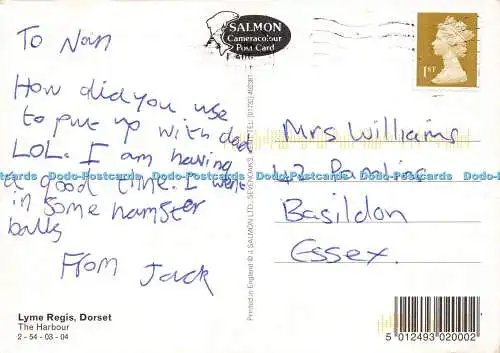 To Nan
How did you use
to put up with dad
LOL. I am having
a good time. I went
in some hamster
balls
From Jack
SALMON
Cameracolour
Post Card
1ST
Mrs Williams
42
Basildon
Essex.
Printed in England © J. SALMON LTD., SEVENOAKS,
Lyme Regis, Dorset
The Harbour
2 - 54 - 03 - 04
5 012493 020002
Dodo-Postcards
www.dodo-postcards.com